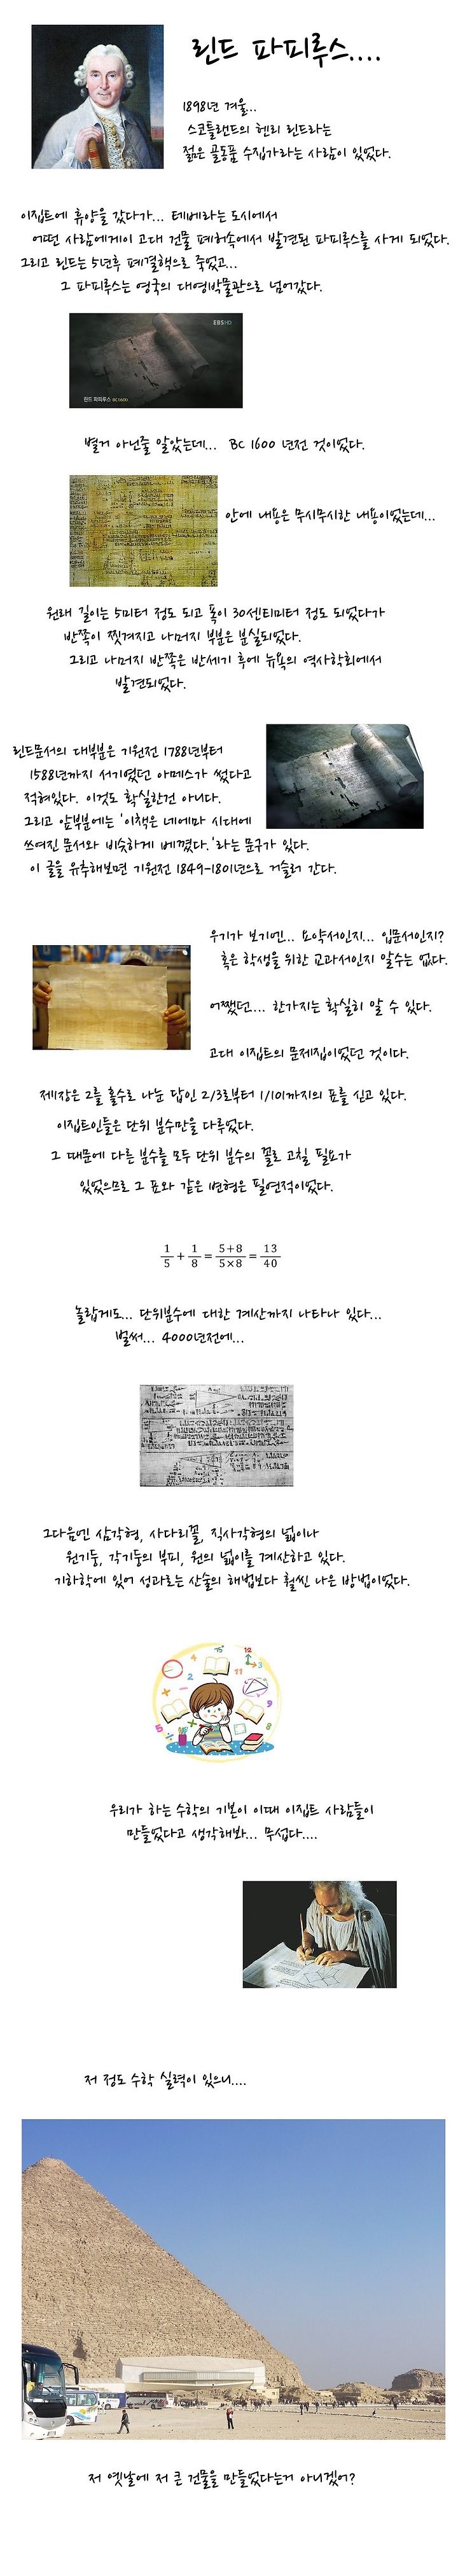 린드 파피루스....
1898년 겨울...
스코틀랜드의 헨리 린드라는
젊은 골동품 수집가라는 사람이 있었다.
이집트에 휴양을 갔다가... 테베라는 도시에서
어떤 사람에게이 고대 건물 폐허속에서 발견된 파피루스를 사게 되었다.
그리고 린드는 5년후 폐결핵으로 죽었고...
그 파피루스는 영국의 대영박물관으로 넘어갔다.
EBS HD
린드 파피루스 BC1600
별거 아닌줄 알았는데... BC 1600 년전 것이었다.
안에 내용은 무시무시한 내용이었는데...
원래 길이는 5미터 정도 되고 폭이 30센티미터 정도 되었다가
반쪽이 찢겨지고 나머지 부분은 분실되었다.
그리고 나머지 반쪽은 반세기 후에 뉴욕의 역사학회에서
발견되었다.
린드문서의 대부분은 기원전 1788년부터
1588년까지 서기였던 아메스가 썼다고
적혀있다. 이것도 확실한건 아니다.
그리고 앞부분에는 '이책은 네에마 시대에
쓰여진 문서와 비슷하게 베꼈다.'라는 문구가 있다.
이 글을 유추해보면 기원전 1849-1801년으로 거슬러 간다.
우기가 보기엔.. 요약서인지... 입문서인지?
혹은 학생을 위한 교과서인지 알수는 없다.
어쨌던.... 한가지는 확실히 알 수 있다.
고대 이집트의 문제집이었던 것이다.
제1장은 2를 홀수로 나눈 답인 2/3로부터 1/101까지의 표를 싣고 있다.
이집트인들은 단위 분수만을 다루었다.
그 때문에 다른 분수를 모두 단위 분수의 꼴로 고칠 필요가
있었으므로 그 표와 같은 변형은 필연적이었다.
1/5 + 1/8 = 5+8/5×8 = 13/40
놀랍게도... 단위분수에 대한 계산까지 나타나 있다...
벌써... 4000년전에...
그다음엔 삼각형, 사다리꼴, 직사각형의 넓이나
원기둥, 각기둥의 부피, 원의 넓이를 계산하고 있다.
기하학에 있어 성과로는 산술의 해법보다 훨씬 나은 방법이었다.
우리가 하는 수학의 기본이 이때 이집트 사람들이
만들었다고 생각해봐... 무섭다....
저 정도 수학 실력이 있으니....
저 옛날에 저 큰 건물을 만들었다는거 아니겠어?